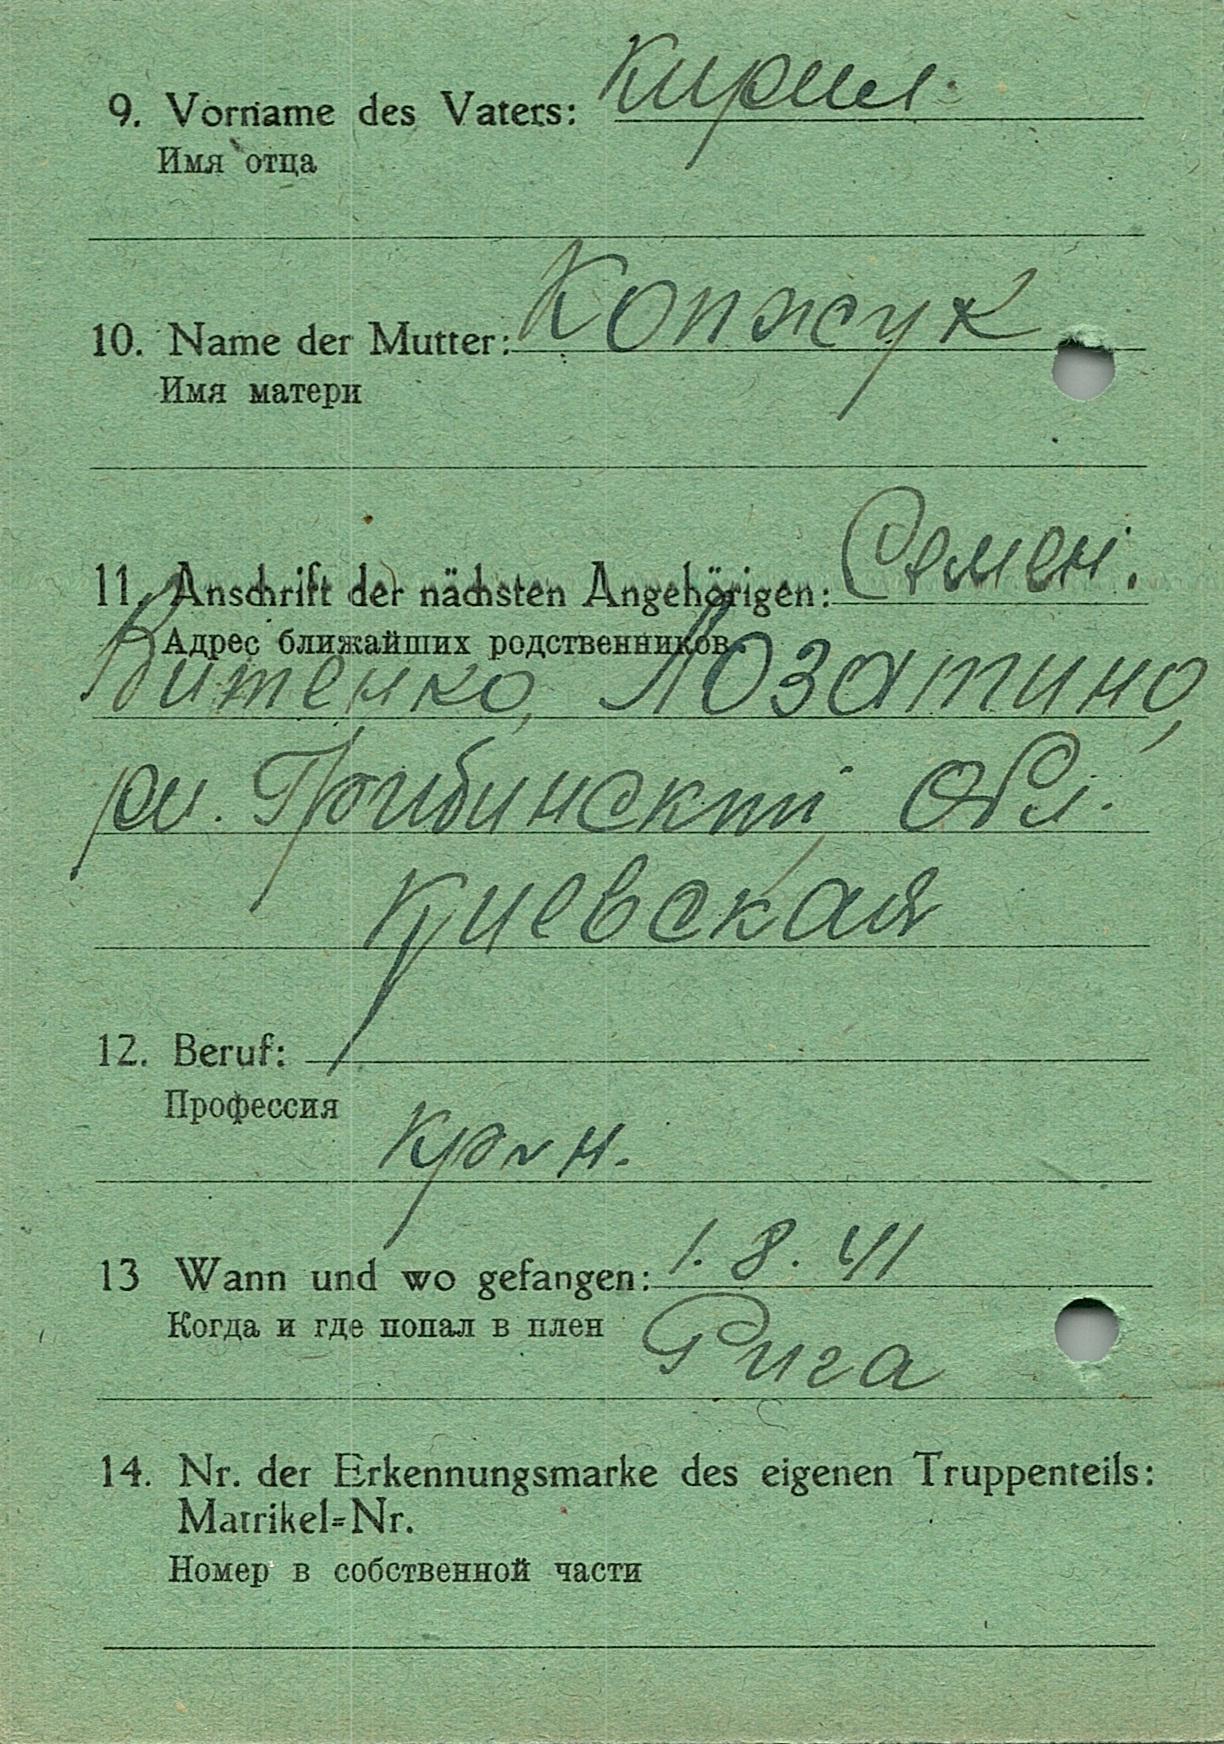 9. Vorname des Vaters: Кирил.
Имя отца
10. Name der Mutter: Копжук
Имя матери
11. Anschrift der nächsten Angehörigen: Семен.
Адрес ближайших родственников
Витенко, Лозатино,
обл.
Киевская
12. Beruf:
Профессия
13 Wann und wo gefangen: 1.8.41
Когда и где попал в плен Рига
14. Nr. der Erkennungsmarke des eigenen Truppenteils:
Matrikel=Nr.
Номер в собственной части